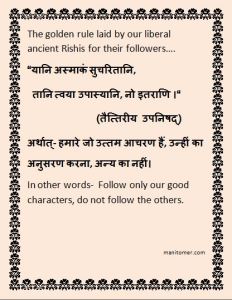 The golden rule laid by our liberal
ancient Rishis for their followers....
"यानि अस्माकं सुचरितानि,
तानि त्वया उपास्यानि, नो इतराणि ।"
(तैत्तिरीय उपनिषद्)
अर्थात्- हमारे जो उत्तम आचरण हैं, उन्हीं का
अनुसरण करना, अन्य का नहीं।
In other words- Follow only our good
characters, do not follow the others.
manitomer.com